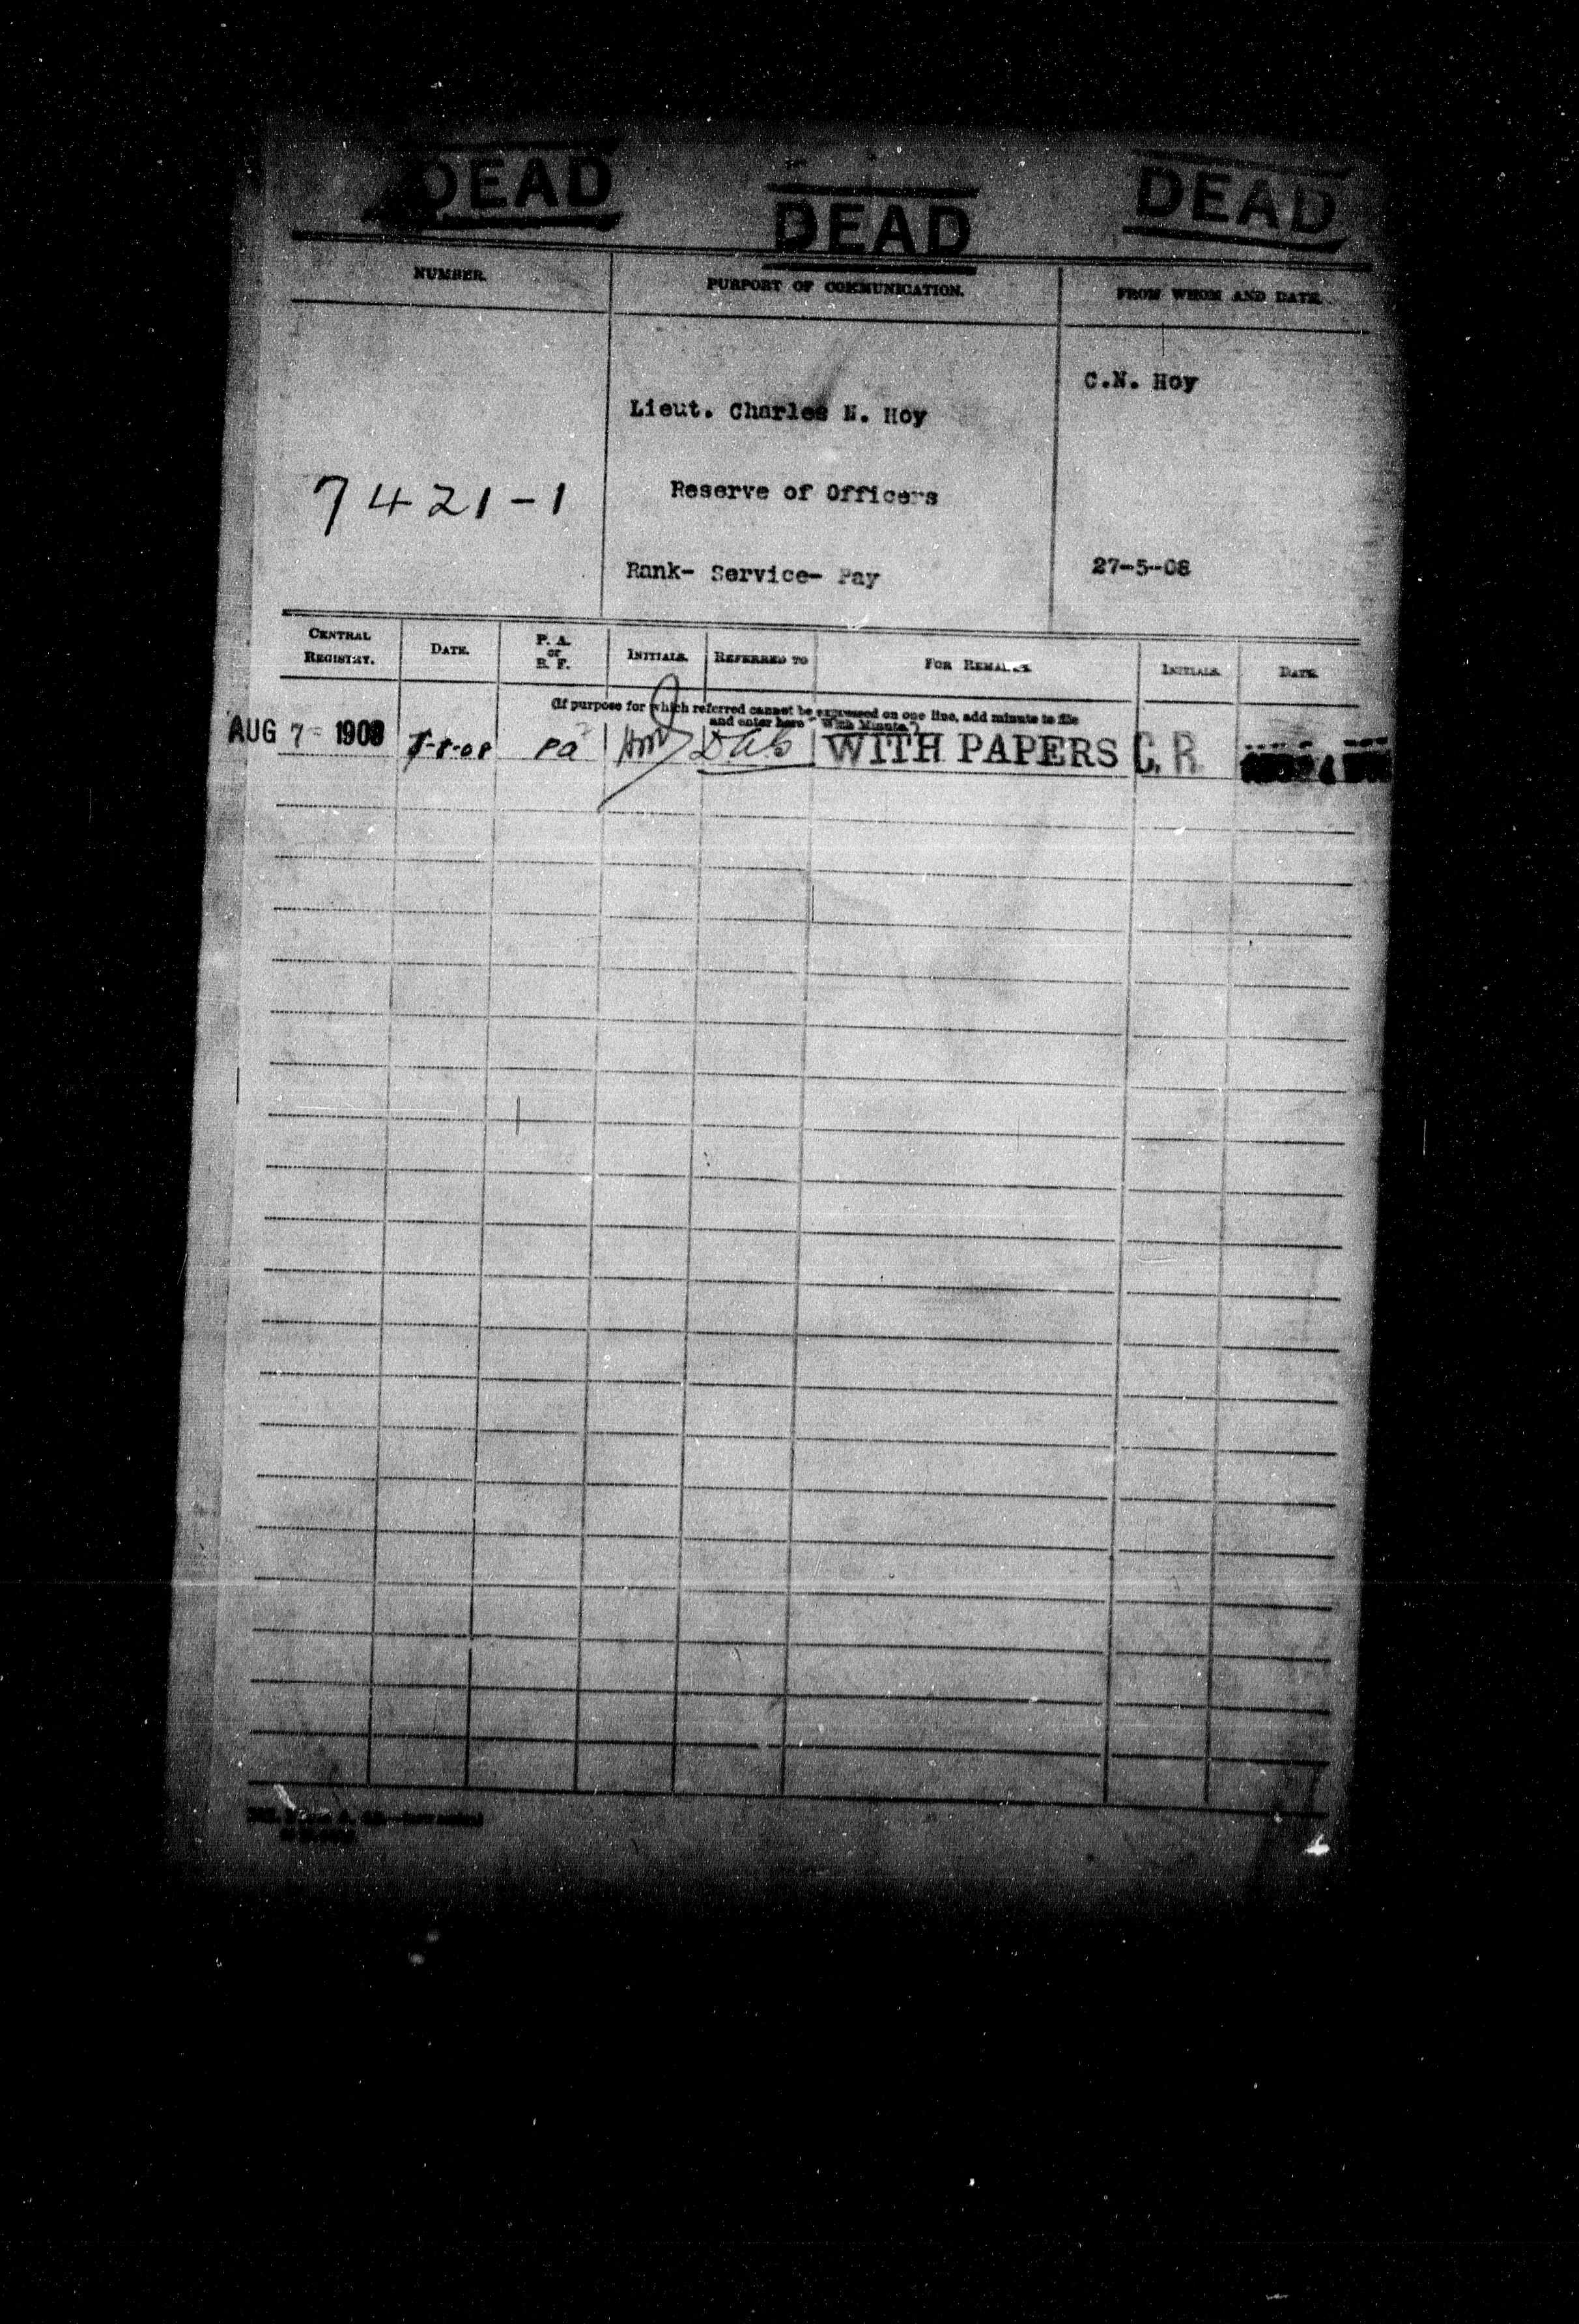 DEAD DEAD DEAD
NUMBER. PURPORT OF COMMUNICATION. FROM WHOM AND DATE.
C.N. Hoy
Lieut. Charles N. Hoy
7421-1 Reserve of Officers
Rank- Service- Pay 27-5-08
CENTRAL REGISTRY. DATE. P. A. or B. F. INITIALS. REFERRED TO FOR REMARKS INITIALS. DATE.
(If purpose for which referred cannot be expressed on one line, add minute to file
and enter here "With Minute.")
AUG 7- 1908 8-8-08 Pa WITH PAPERS C. R.